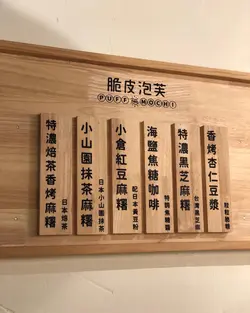 脆皮泡芙
PUFF MOCHI
香烤杏仁豆漿
特濃黑芝麻糬
台灣黑芝麻
海鹽焦糖咖啡
特調焦糖醬
小倉紅豆麻糬
配日本黃豆粉
小山園抹茶麻糬
日本小山園抹茶
特濃焙茶香烤麻糬
日本焙茶